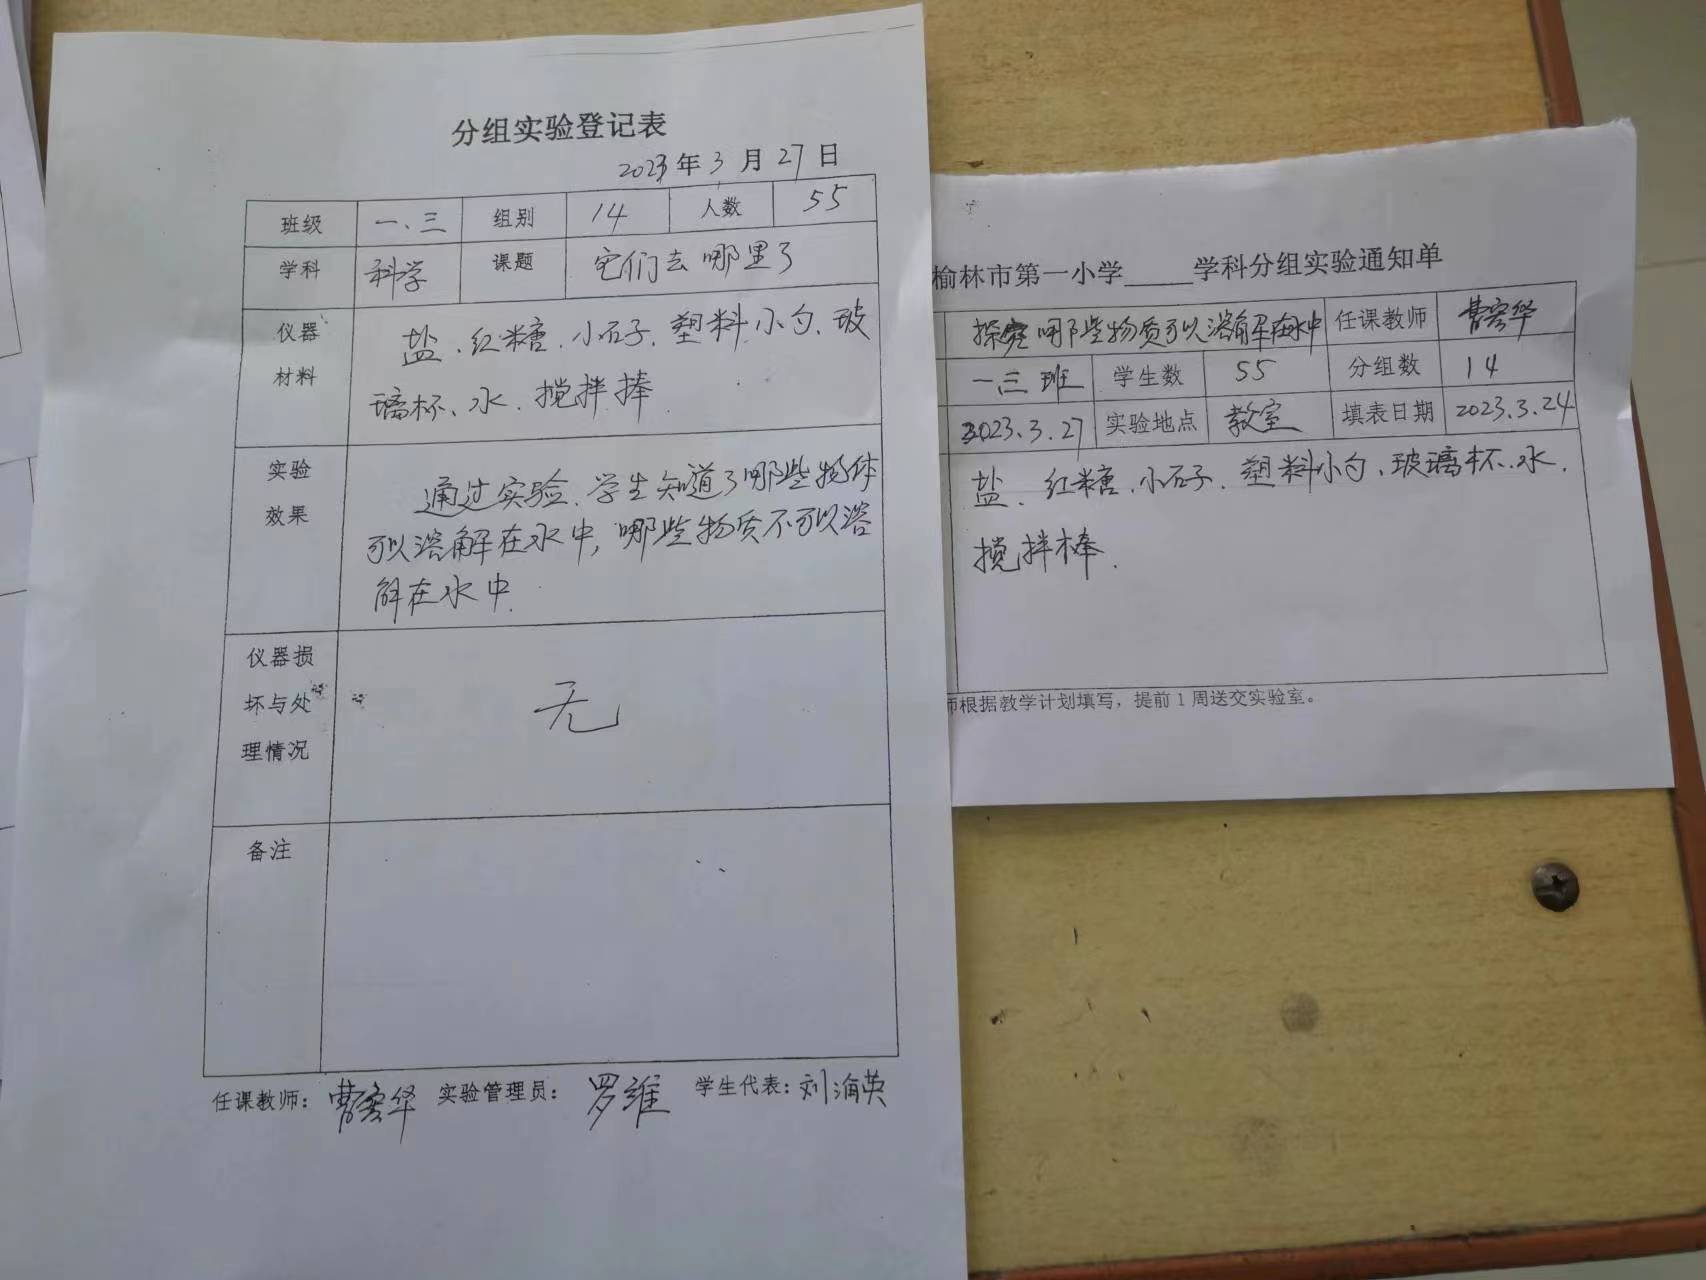 分组实验登记表
2023年3月27日
班级 一、三 组别 14 人数 55
学科 科学 课题 它们去哪里了
仪器材料 盐、红糖、小石子、塑料小勺、玻
璃杯、水、搅拌棒
实验效果 通过实验、学生知道了哪些物体
可以溶解在水中,哪些物质不可以溶
解在水中.
仪器损坏与处理情况 无
备注
任课教师: 曹 华 实验管理员: 罗维 学生代表: 刘 英
榆林市第一小学 学科分组实验通知单
探究哪些物质可以溶解在水中 任课教师 曹 华
一、三班 学生数 55 分组数 14
2023.3.27 实验地点 教室 填表日期 2023.3.24
盐、红糖、小石子、塑料小勺、玻璃杯、水、
搅拌棒.
师根据教学计划填写，提前1周送交实验室。